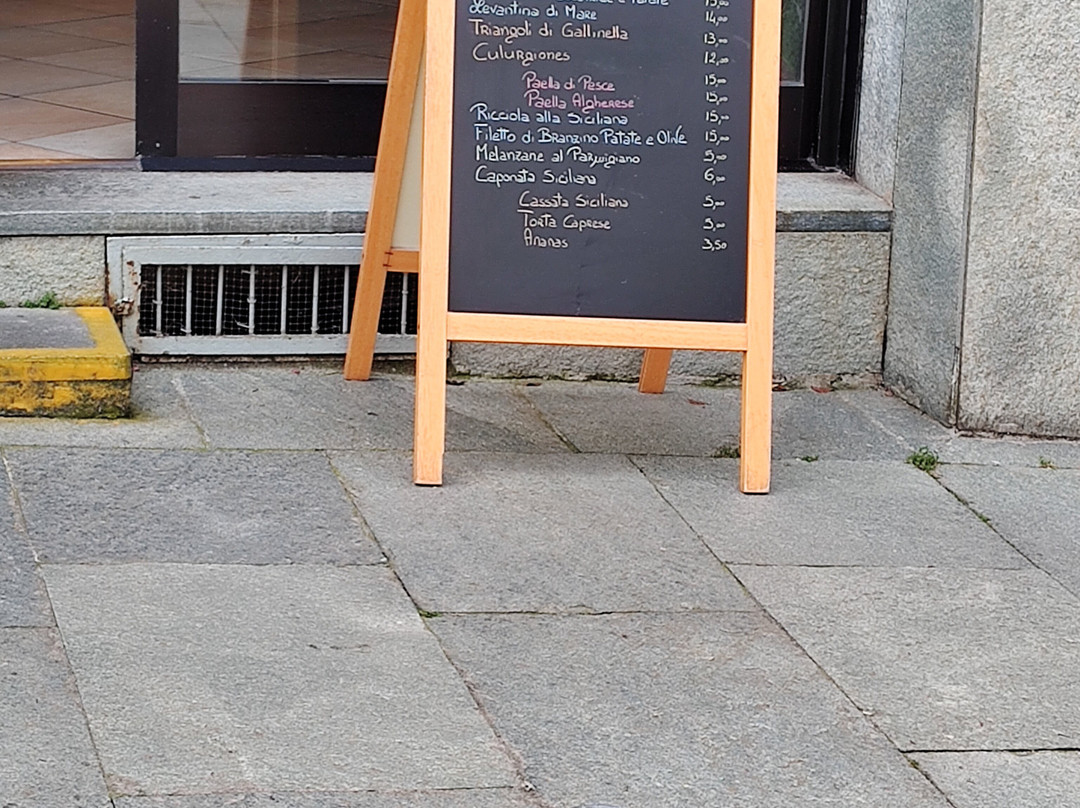 e Patate 15,00
Levantina di Mare 14,00
Triangoli di Gallinella 13,00
Culurgiones 12,00
Paella di Pesce 15,00
Paella Algherese 15,00
Ricciola alla Siciliana 15,00
Filetto di Branzino Patate e Olive 15,00
Melanzane al Parmigiano 5,00
Caponata Siciliana 6,00
Cassata Siciliana 5,00
Torta Caprese 5,00
Ananas 3,50